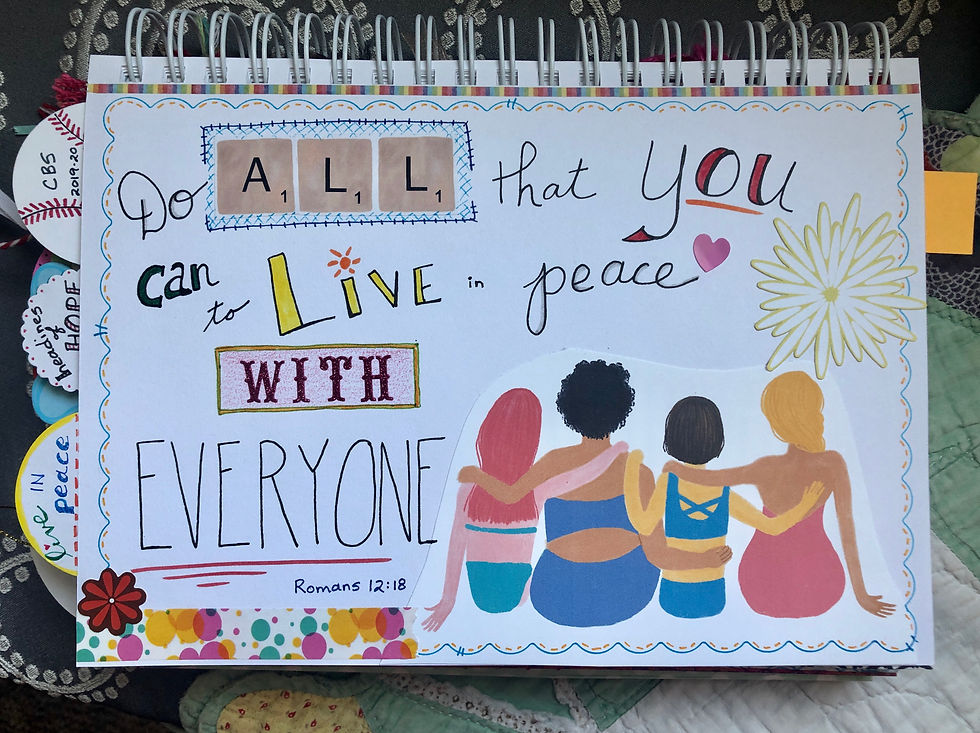 Do ALL that you
can to LIVE in peace
WITH
EVERYONE
Romans 12:18
CBS
2019-20
headlines
of
HOPE
live IN
peace